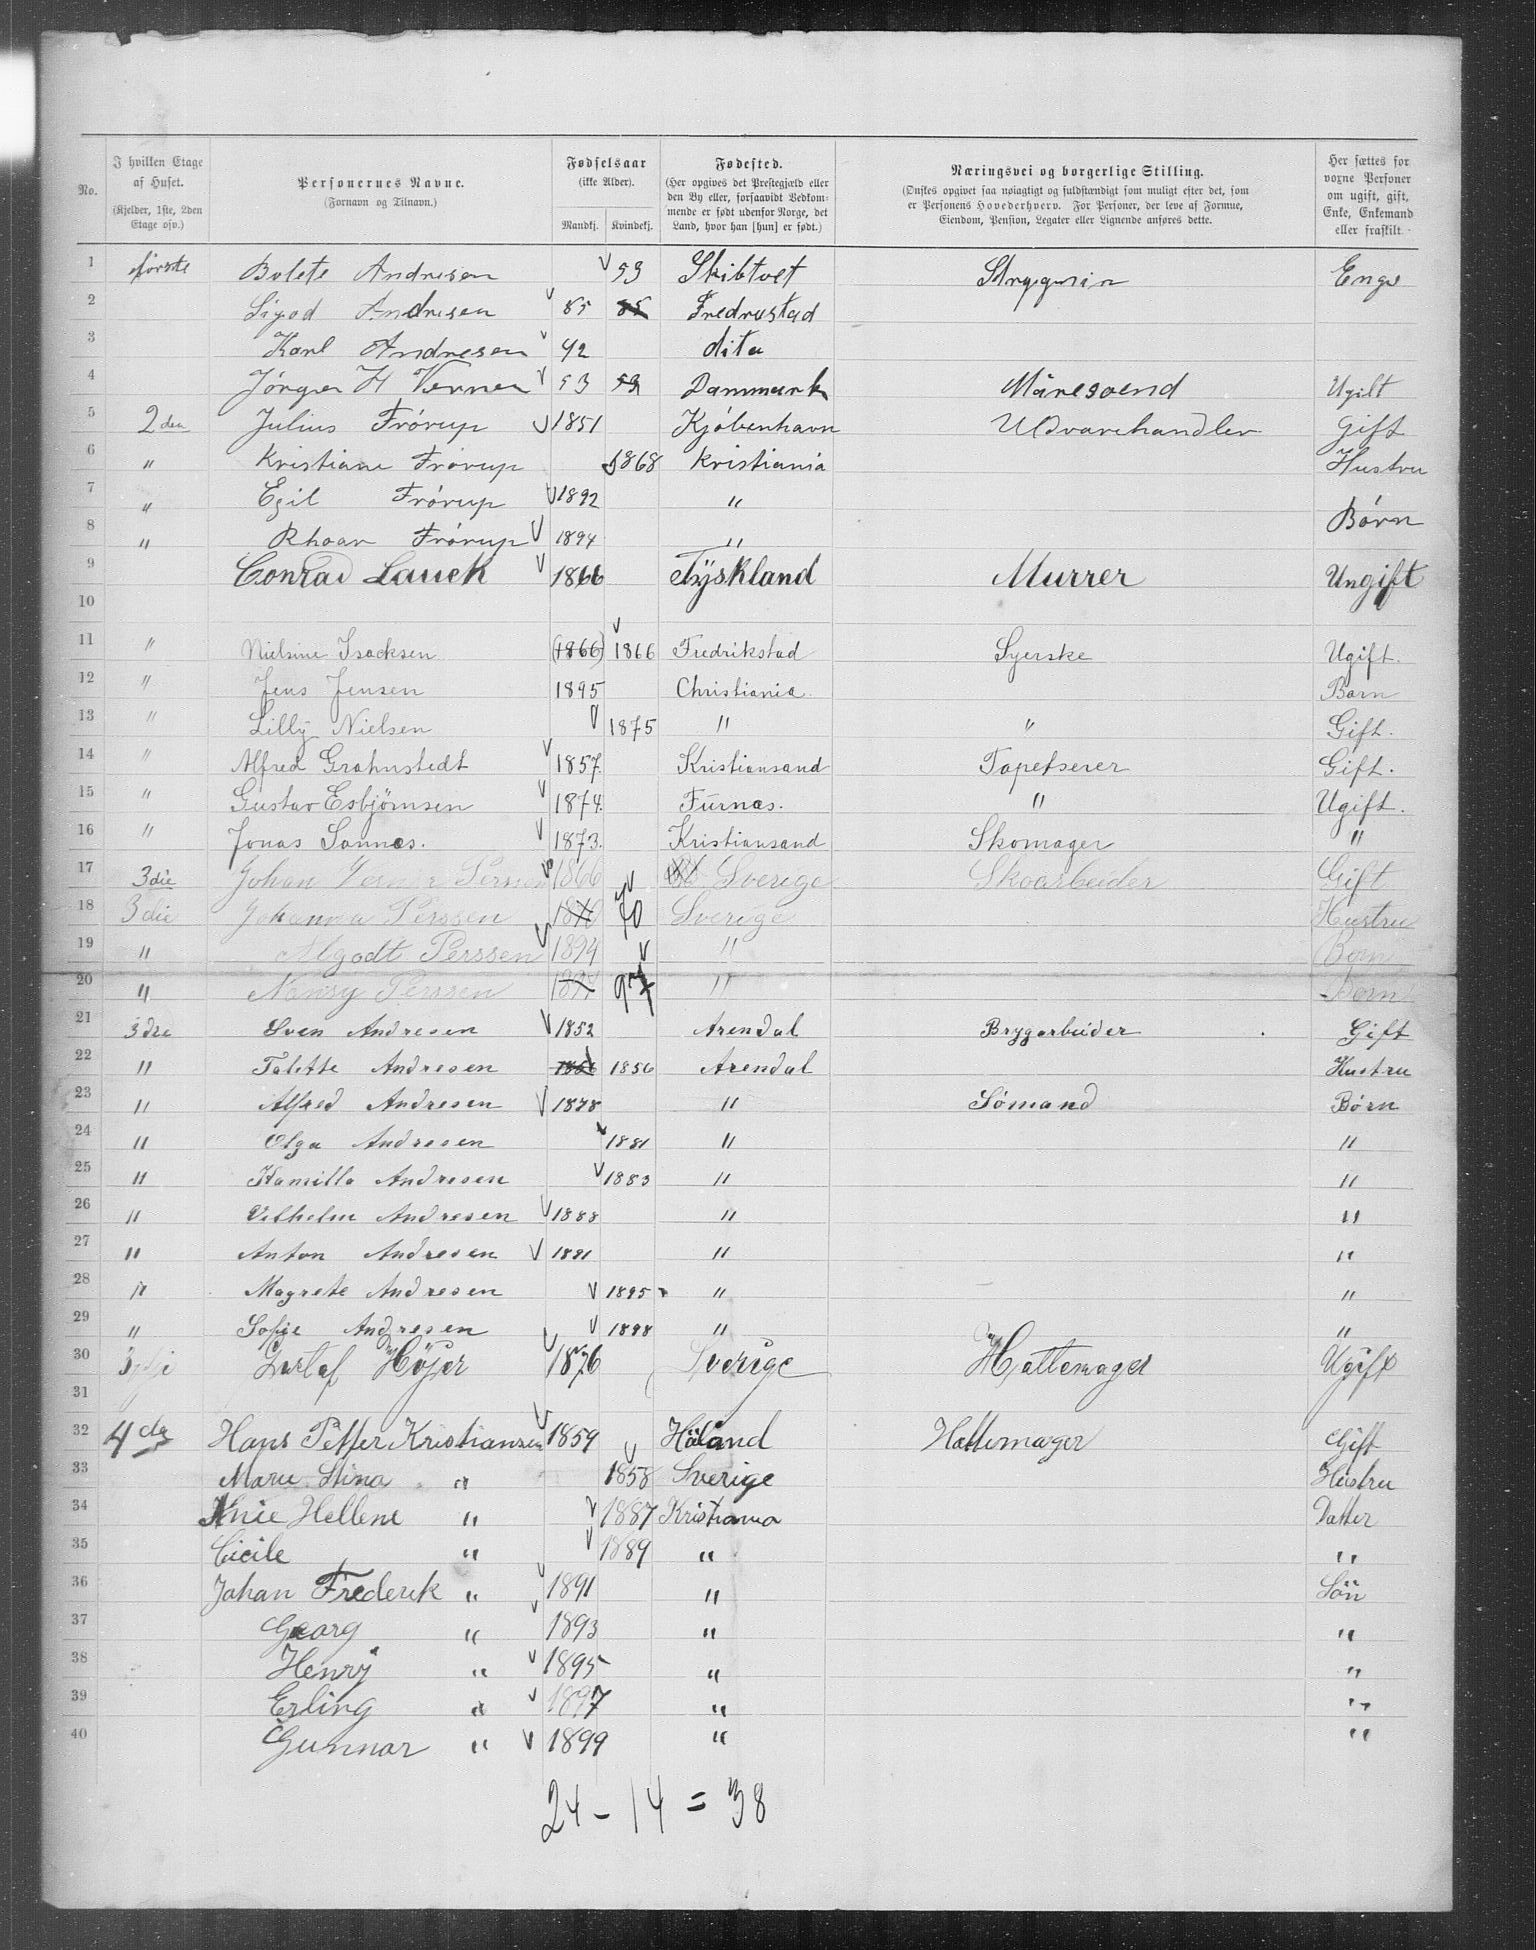 No.	I hvilken Etage af Huset. (Kjelder, 1ste, 2den Etage osv.)	Personernes Navne. (Fornavn og Tilnavn.)	Fødselsaar (ikke Alder). Mandkj. Kvindekj.	Fødested. (Her opgives det Prestegjæld eller den By eller, forsaavidt Vedkommende er født udenfor Norge, det Land, hvor han [hun] er født.)	Næringsvei og borgerlige Stilling. (Ønskes opgivet saa nøiagtigt og fuldstændigt som muligt efter det, som er Personens Hovederhverv. For Personer, der leve af Formue, Eiendom, Pension, Legater eller Lignende anføres dette.)	Her sættes for voxne Personer om ugift, gift, Enke, Enkemand eller fraskilt.
1 første Bolete Andresen 53 Skibtvet Enge
2 Sigod Andresen 85 85 Fredrustad
3 Karl Andresen 92 dito
4 Jørgen H Verner 53 53 Danmark Ugilt
5 2den Julius Frórup 1851 Kjóbenhavn Uldvarehandler Gift
6 " Kristiane Frórup 1868 Kristiania Hustru
7 " Egil Frórup 1892 "
8 " Rhoar Frórup 1894 " Børn
9 Conrad Lauck 1866 Tÿskland Murrer Ungift
10
11 " Nielsine Isacksen (1866) 1866 Fredrikstad Syerske Ugift.
12 " Jens Jensen 1895 Christiania Barn
13 " Lilly Nielsen 1875 " " Gift.
14 " Alfred Grahnstedt 1857. Kristiansand Tapetserer Gift.
15 " Gustav Esbjörnsen 1874. Furnes. " Ugift.
16 " Jonas Sannes. 1873. Kristiansand Skomager "
17 3die Johan Verner Perssen 1866 Sverige Skoarbeider Gift
18 3die Johanna Perssen 1870 70 Sverige Hustru
19 " Algodt Perssen 1894 " Børn
20 " Nansy Perssen 1897 97 " Børn
21 3dre Sven Andresen 1852 Arendal Brygarbeider Gift
22 " Talette Andresen 1856 1856 Arendal Hustru
23 " Alfred Andresen 1878 " Sómand Bórn
24 " Olga Andresen 1881 " "
25 " Kamilla Andresen 1883 " "
26 " Vilhelm Andresen 1888 " "
27 " Anton Andresen 1891 " "
28 " Magrete Andresen 1895 " "
29 " Sofie Andresen 1898 " "
30 3die Gustaf Höjer 1876 Sverige Hattemager Ugift
31
32 4de Hans Petter Kristiansen 1859 Höland Hattemager Gift
33 Marie Stina " 1858 Sverige Hustru
34 Anie Hellene " 1887 Kristiania Datter
35 Cicile " 1889 " "
36 Johan Frederik " 1891 " Sön
37 Georg " 1893 " "
38 Henry " 1895 " "
39 Erling " 1897 " "
40 Gunnar " 1899 " "
24 - 14 = 38